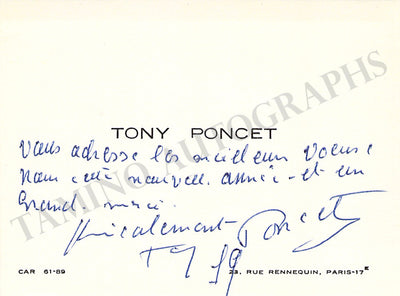 TAMINO AUTOGRAPHS
TONY PONCET
Vous adresse les meilleurs voeux
pour cette nouvelle année - et un
Grand merci.
Amicalement
Tony Poncet
59
CAR 61-89
23, RUE RENNEQUIN, PARIS-17E